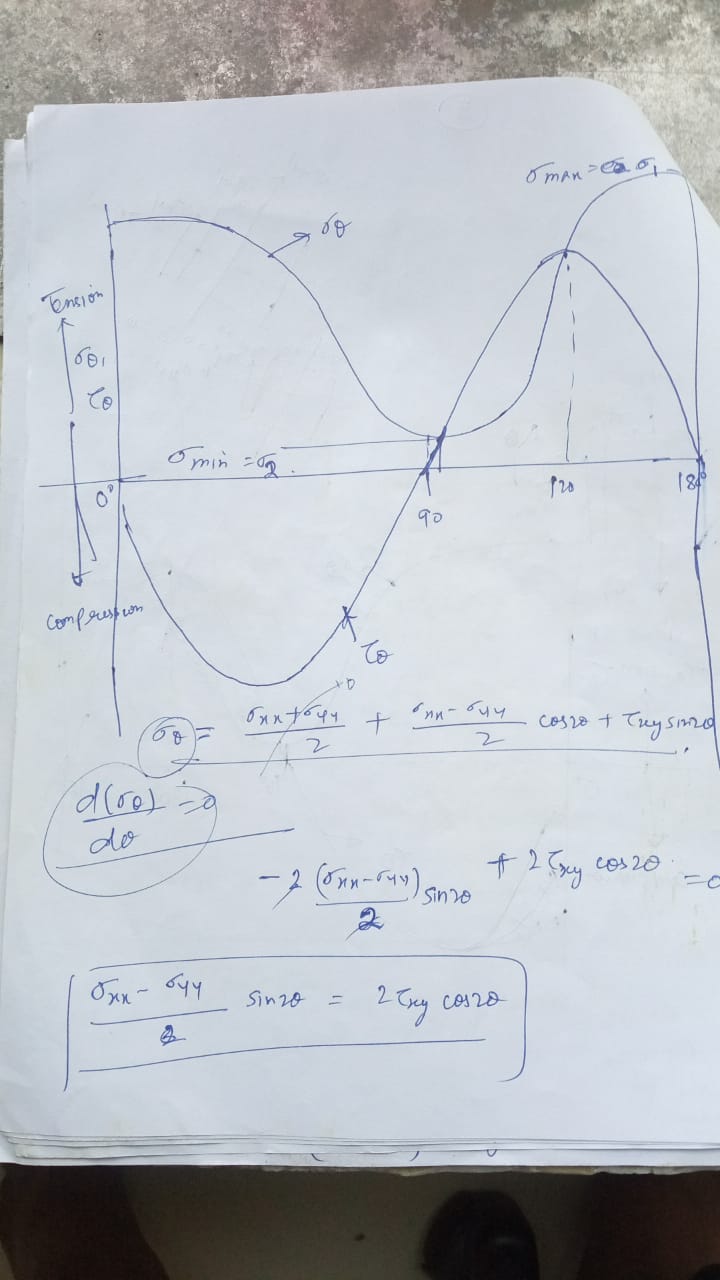 σmax = σ1
σθ
Tension
σθ,
τθ
σmin = σ2
0°
90
120
180°
compression
τθ
→0
σθ = (σxx + σyy)/2 + (σxx - σyy)/2 cos2θ + τxy sin2θ.
d(σθ)/dθ = 0
- 2 (σxx - σyy)/2 sin2θ + 2 τxy cos2θ = 0
(σxx - σyy)/2 sin2θ = 2 τxy cos2θ